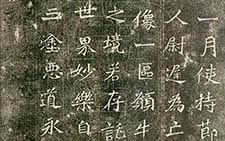 一月使持節
人尉遲為亡
像一區願牛
之境若存託
世界妙樂自
三塗惡道永